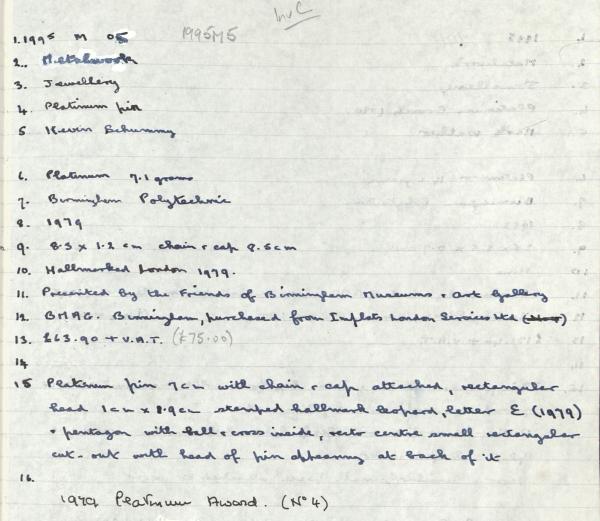 InvC
1. 1995 M 05 1995M5
2. Metalwork
3. Jewellery
4. Platinum pin
5 Kevin Schummy
6. Platinum 7.1 grams
7. Birmingham Polytechnic
8. 1979
9. 8.3 x 1.2 cm chain & cap 8.5cm
10. Hallmarked London 1979.
11. Presented by the Friends of Birmingham Museums & Art Gallery
12. BMAG. Birmingham, purchased from Inplats London Services Ltd
13. £63.90 + V.A.T. (£75.00)
14
15 Platinum pin 7cm with chain & cap attached, rectangular
head 1cm x 8.9cm stamped hallmark leopard, letter E (1979)
& pentagon with ball & cross inside, recto centre small rectangular
cut-out with head of pin appearing at back of it
16.
1979 Platinum Award. (No 4)